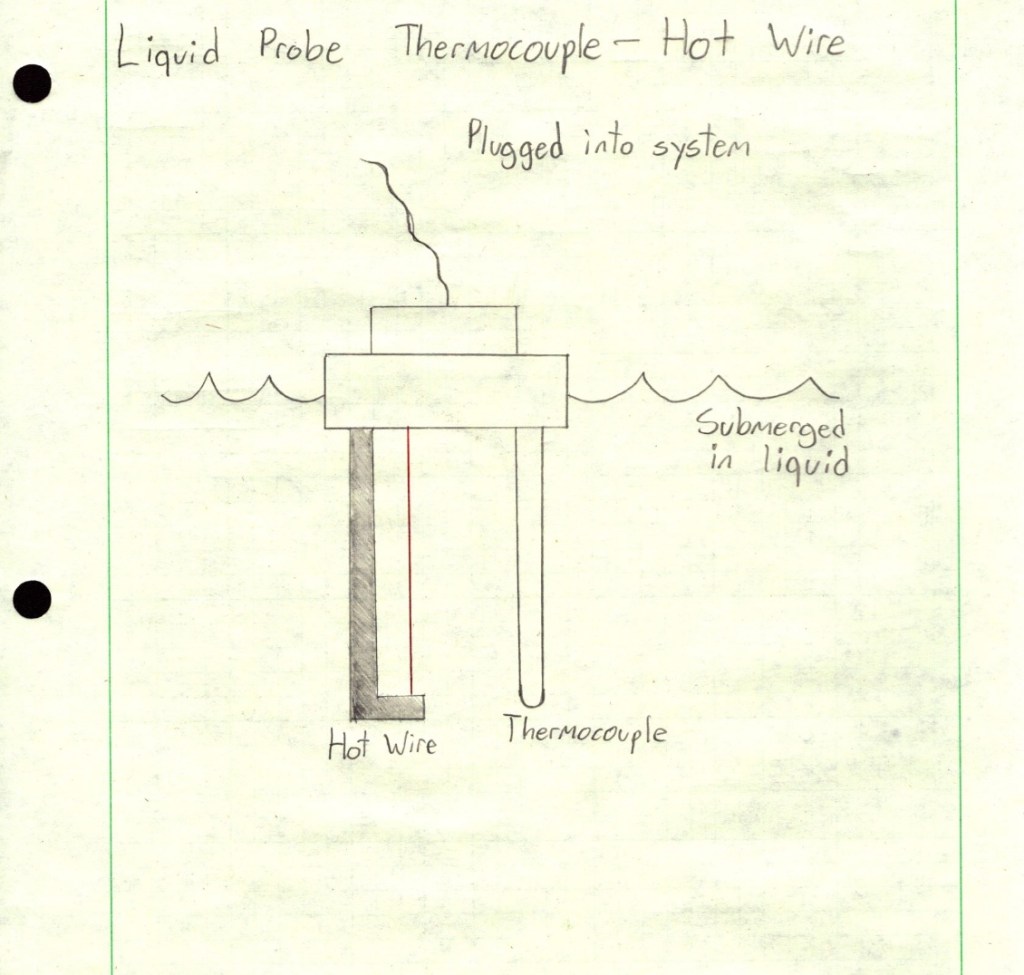 Liquid Probe Thermocouple - Hot Wire
Plugged into system
Submerged
in liquid
Hot Wire
Thermocouple